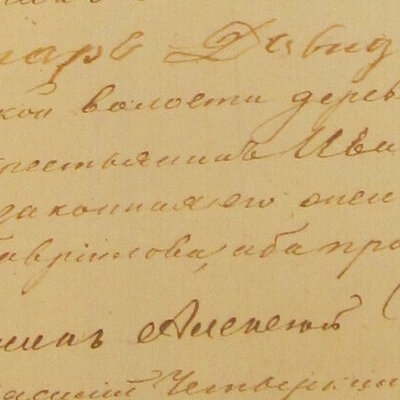 нарѣ Давид
кой волости дерев
крестьянинъ Ива
законная его жен
Гаврилова, оба пра
Алексей
Василій Четвырки